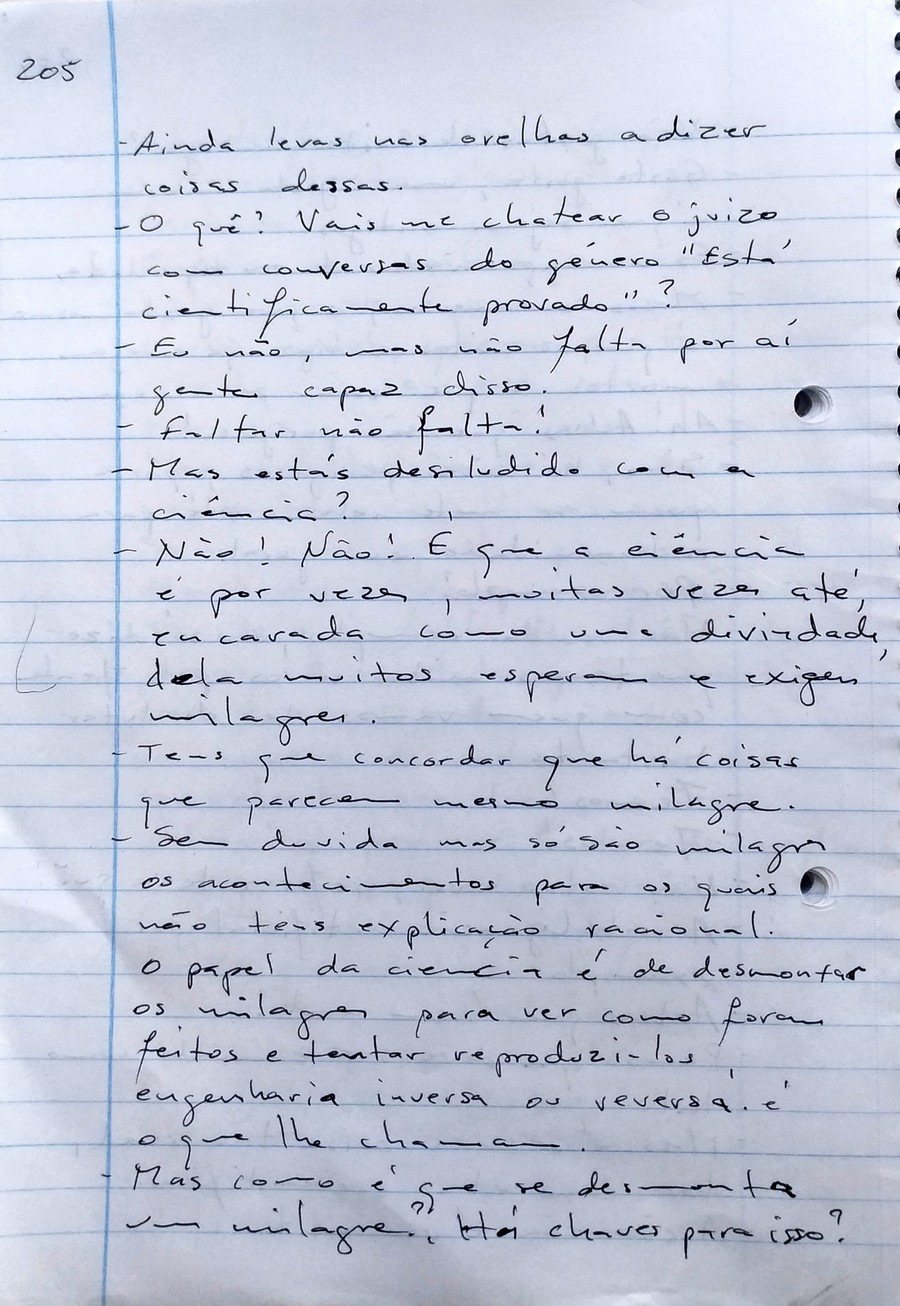 205
- Ainda levas nas orelhas a dizer
coisas dessas.
- O quê? Vais me chatear o juizo
com conversas do género "Está
cientificamente provado"?
- Eu não, mas não falta por aí
gente capaz disso.
- Faltar não falta!
- Mas estás desiludido com a
ciência?
- Não! Não! É que a ciência
é por vezes, muitas vezes até,
encarada como uma divindade,
dela muitos esperam e exigem
milagres.
- Tens que concordar que há coisas
que parecem mesmo milagre.
- Sem duvida mas só são milagres
os acontecimentos para os quais
não tens explicação racional.
O papel da ciencia é de desmontar
os milagres para ver como foram
feitos e tentar reproduzi-los,
engenharia inversa ou reversa é
o que lhe chamam.
- Mas como é que se desmonta
um milagre? Há chaves para isso?